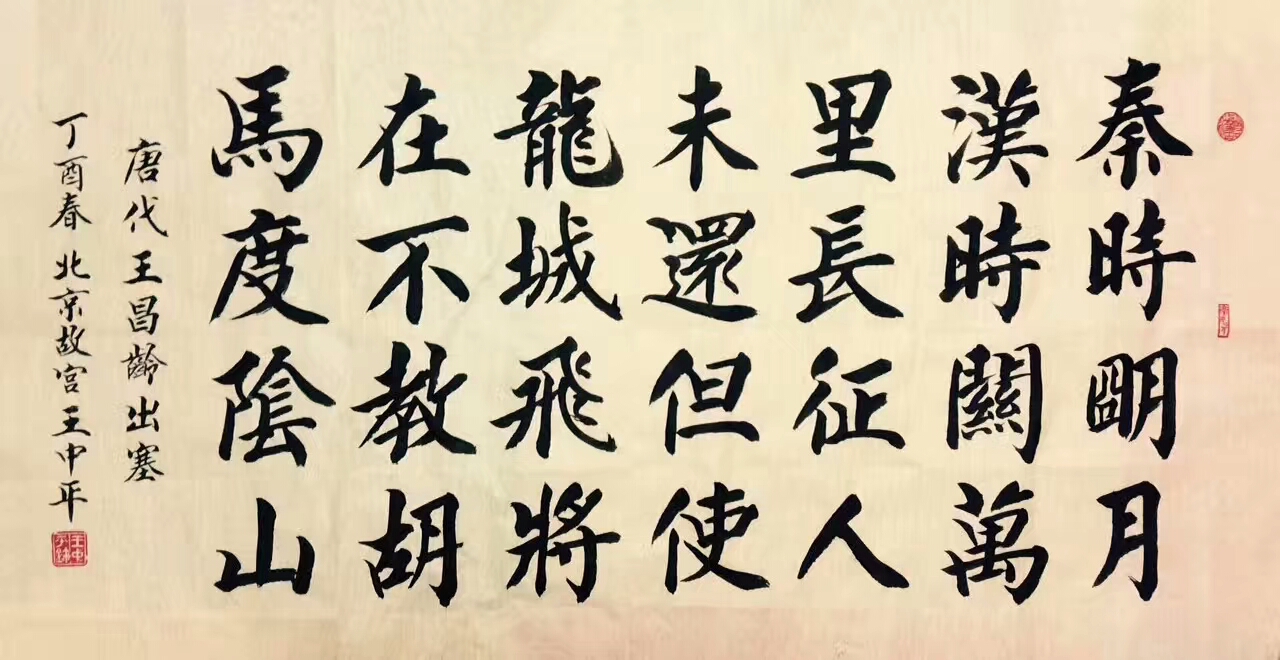 秦時明月
漢時關萬
里長征人
未還但使
龍城飛將
在不教胡
馬度陰山
唐代王昌齡出塞
丁酉春北京故宫王中平